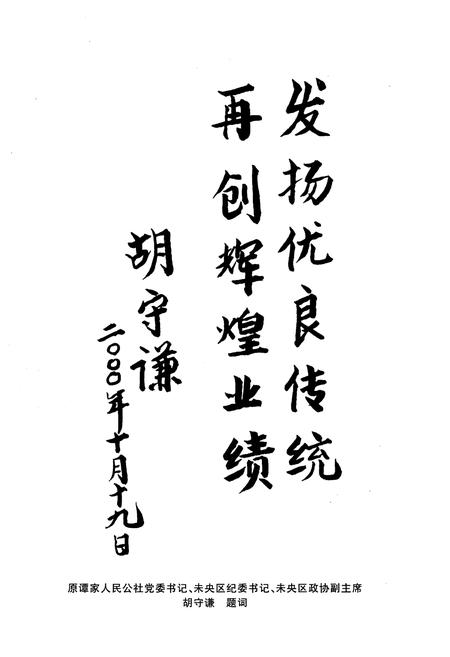 发扬优良传统
再创辉煌业绩
胡守谦
二〇〇〇年十月十九日
原谭家人民公社党委书记、未央区纪委书记、未央区政协副主席
胡守谦 题词